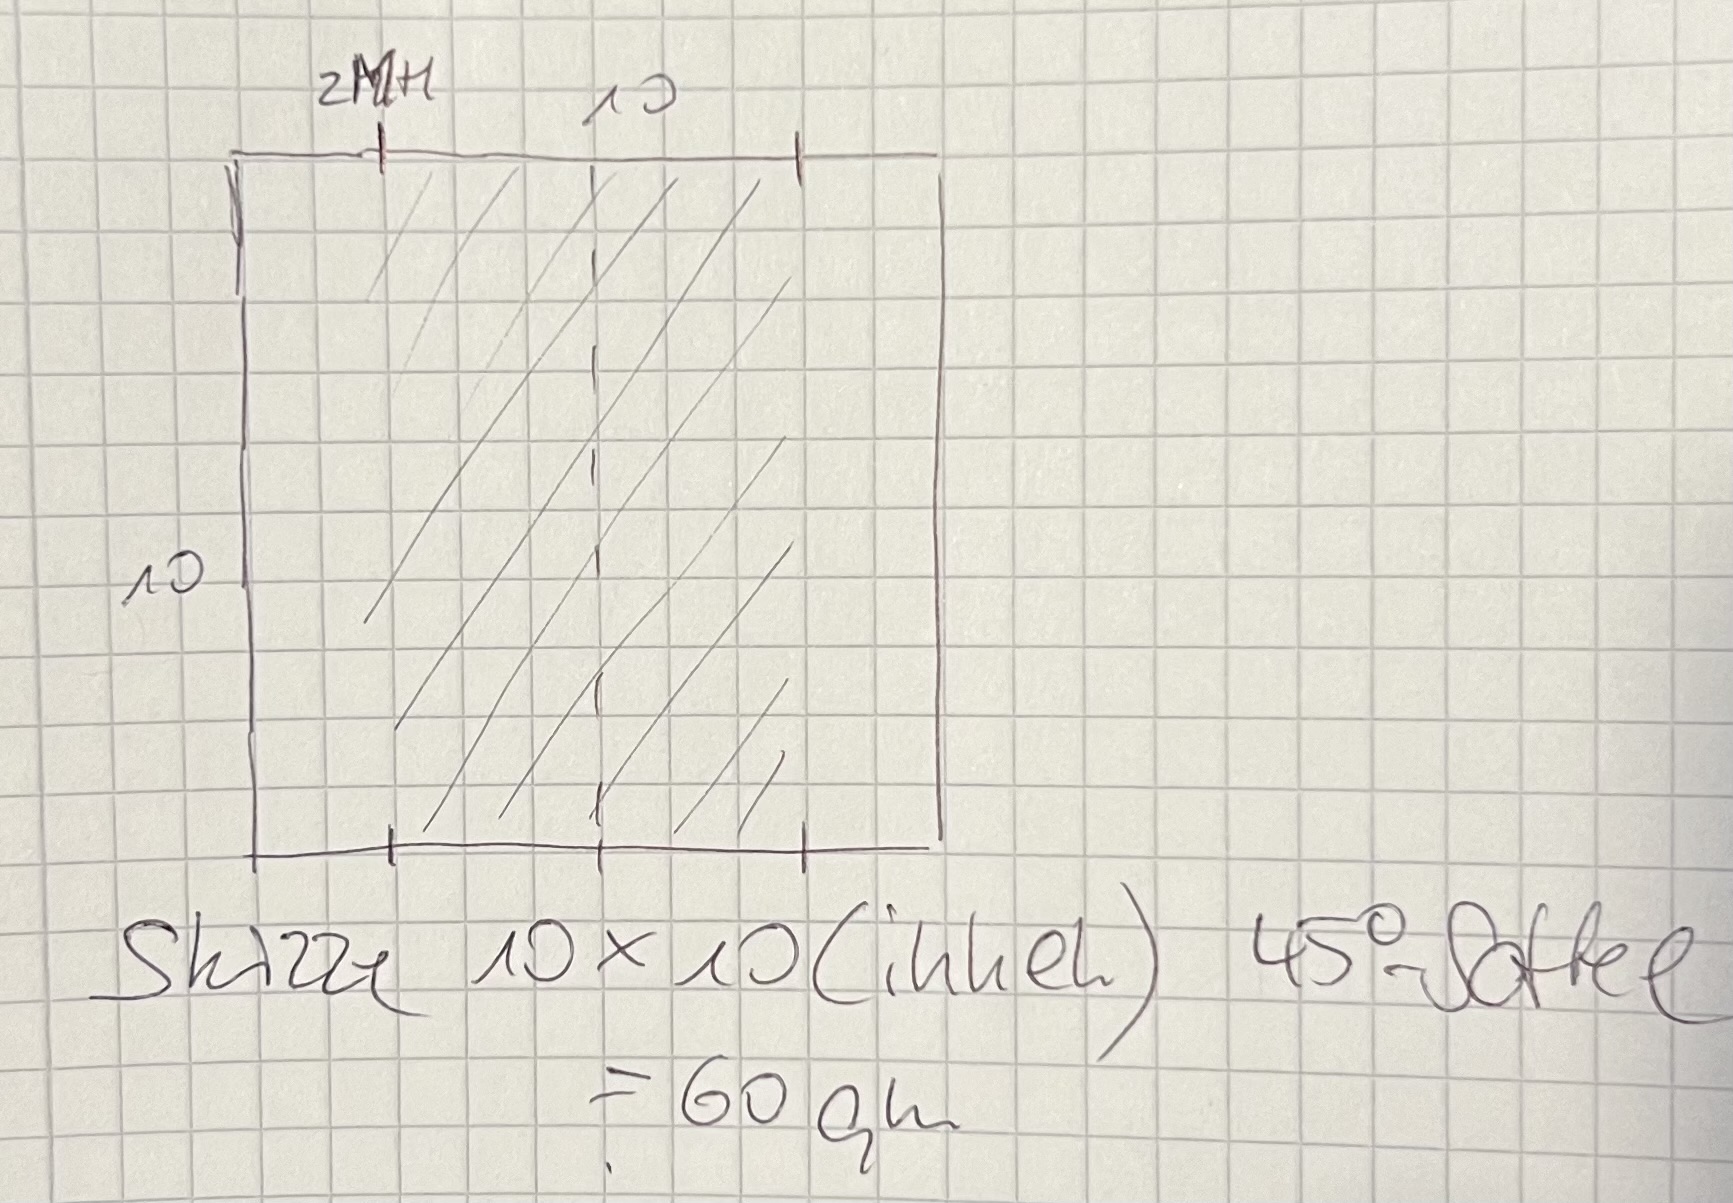 10
10
Skizze 10 x 10 (innen) 45°-Sattel
= 60 qm